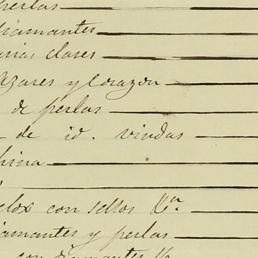 perlas
diamantes
varias clases
Azares y Corazon
de perlas
de id. viudas
china
relox con sellos &n
diamantes y perlas
con diamantes